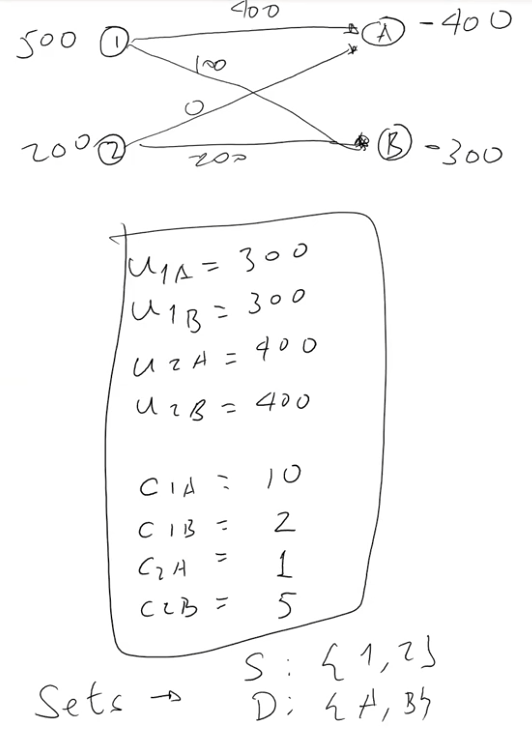 400
500 1 A -400
100
0
200 2 B -300
200
u1A = 300
u1B = 300
u2A = 400
u2B = 400
C1A = 10
C1B = 2
C2A = 1
C2B = 5
S: {1,2}
Sets → D: {A,B}